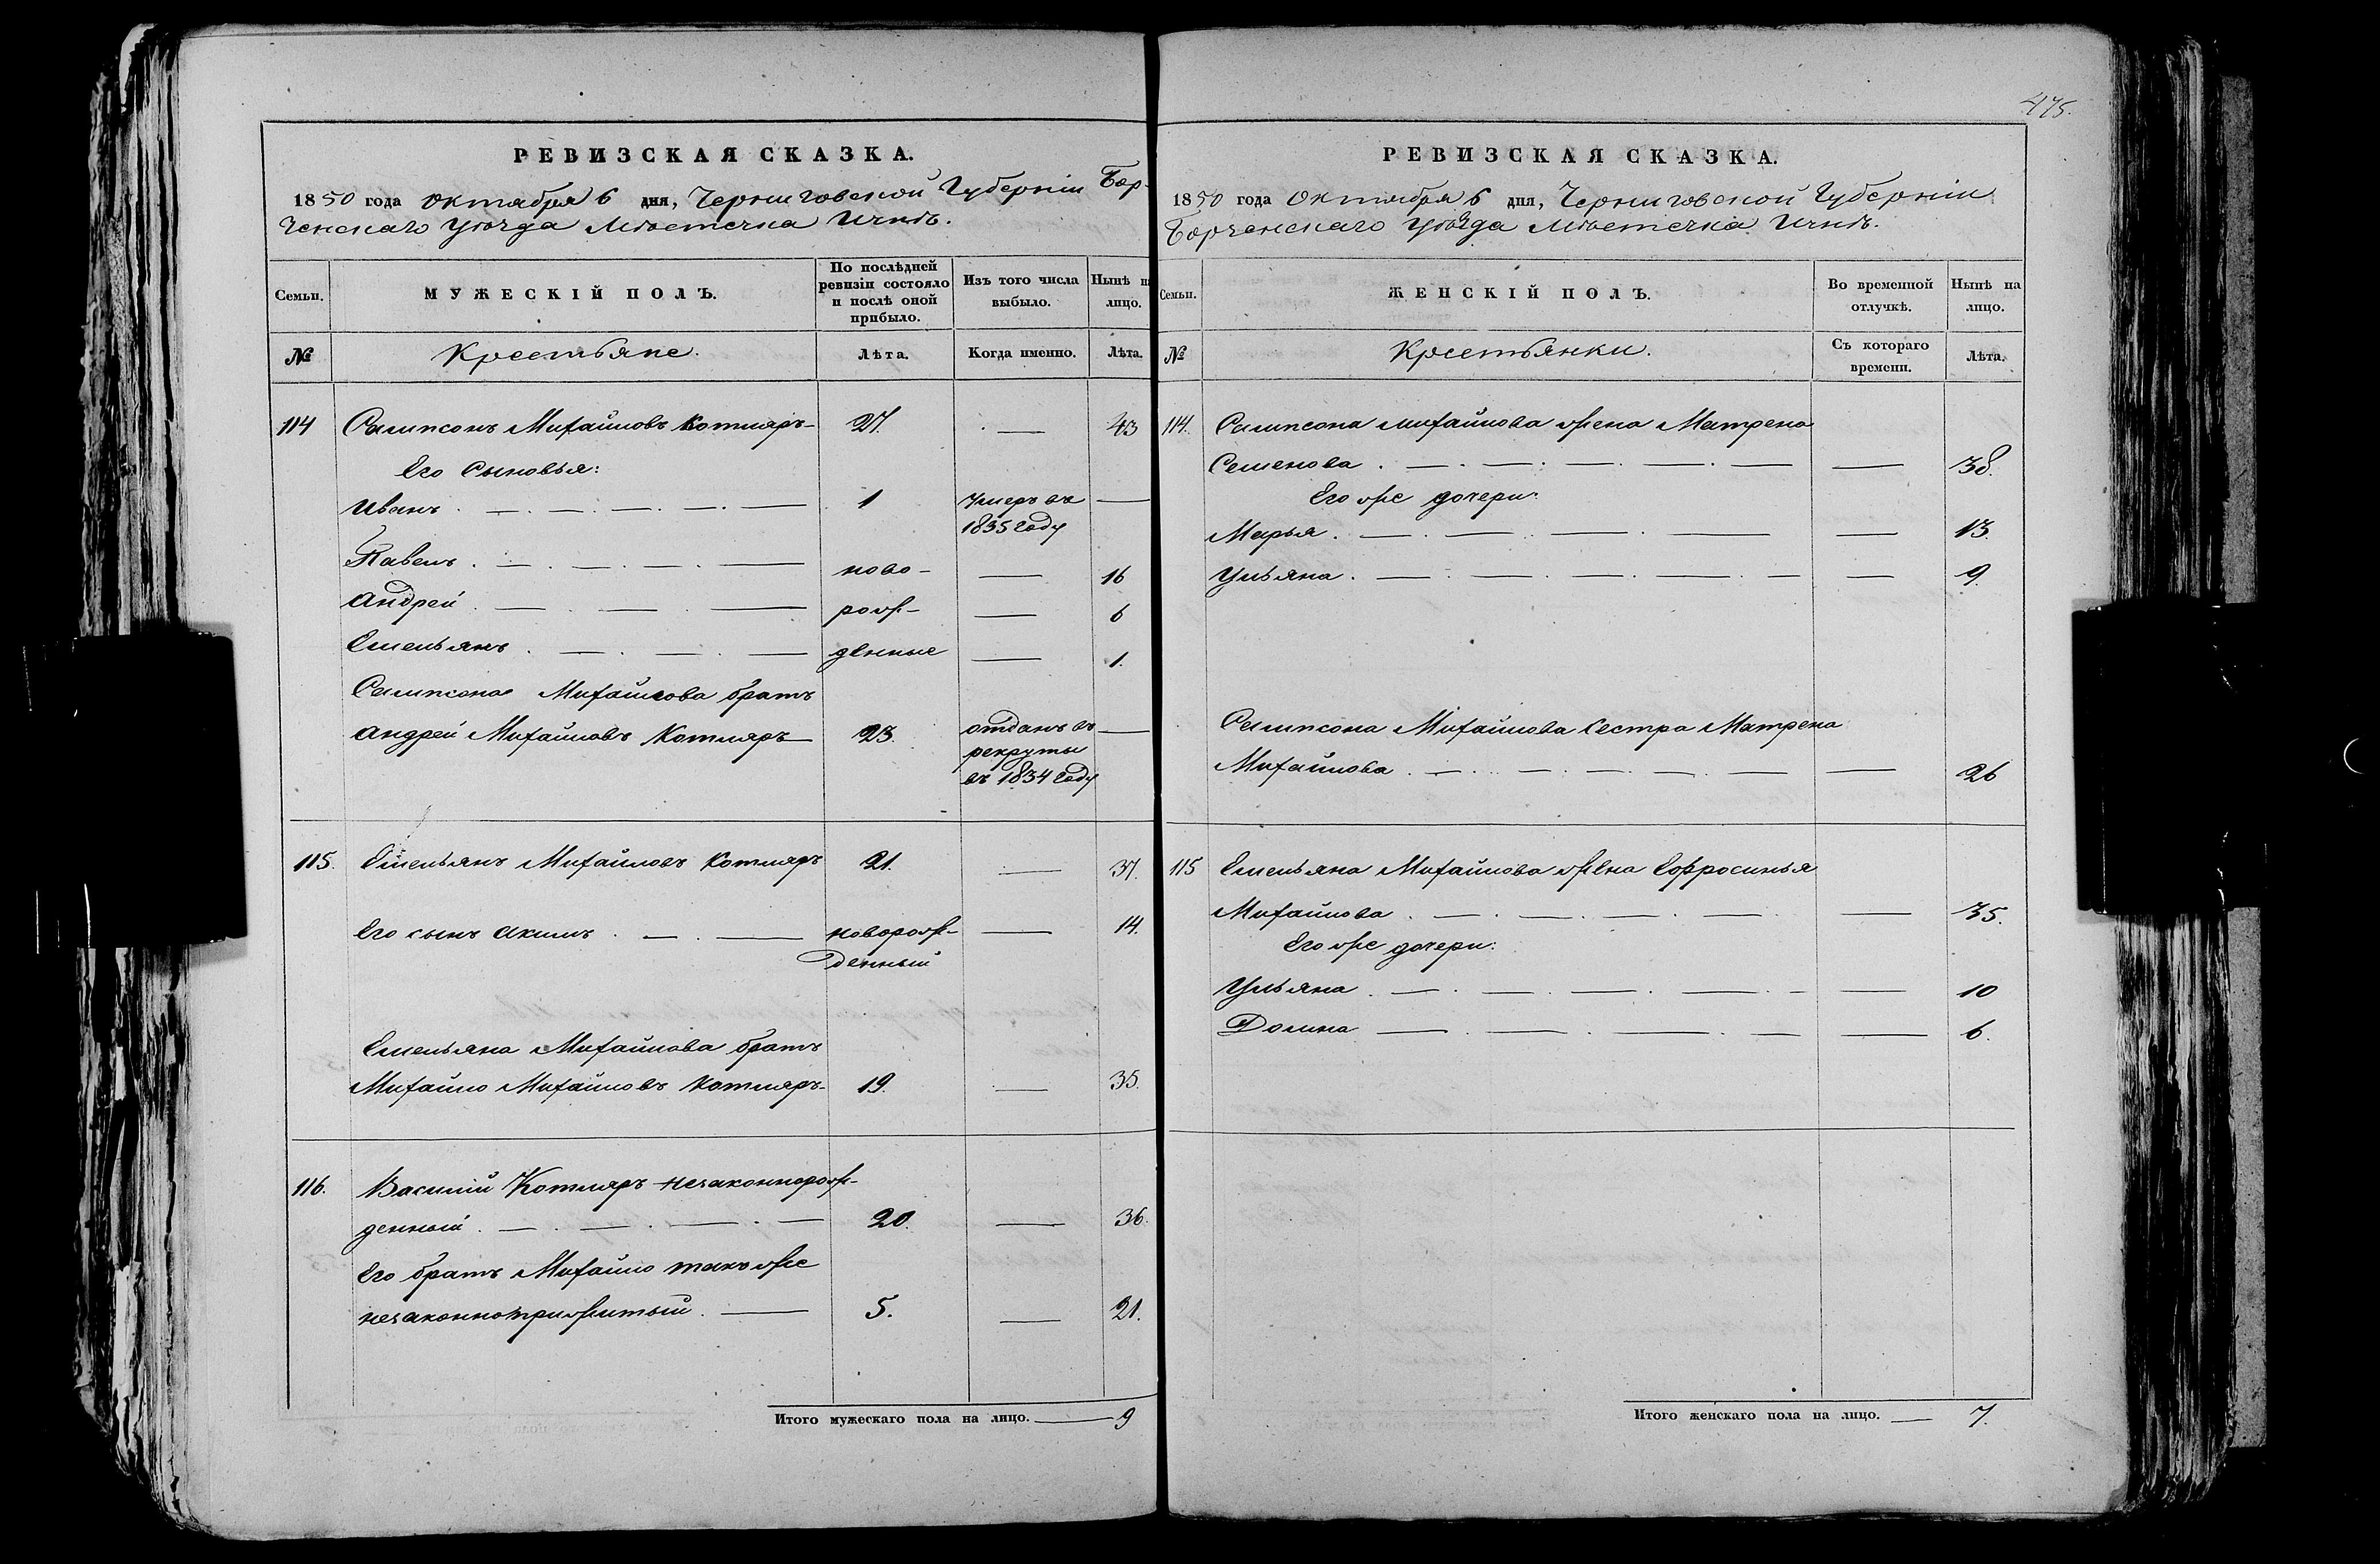 РЕВИЗСКАЯ СКАЗКА.
1850 года Октября 6 дня, Черниговской Губерніи Бор-
зенскаго уѣзда Мѣстечка Ични.
Семьи.
МУЖЕСКІЙ ПОЛЪ.
По послѣдней ревизіи состояло и послѣ оной прибыло.
Изъ того числа выбыло.
Нынѣ на лицо.
№
Крестьяне.
Лѣта.
Когда именно.
Лѣта.
114 Сампсонъ Михайловъ Котляръ 27. — 43
Его Сыновья:
Иванъ 1 Умеръ въ —
1835 году
Павелъ ново- — 16
Андрей рож- — 6
Емельянъ денные — 1.
Сампсона Михайлова братъ
Андрей Михайловъ Котляръ 23. отданъ въ —
рекруты
въ 1834 году
115. Емельянъ Михайловъ Котляръ 21. — 37.
Его сынъ Акимъ новорож- — 14.
денный
Емельяна Михайлова братъ
Михайло Михайловъ Котляръ 19. — 35.
116. Василий Котляръ незаконнорож-
денный 20. — 36.
Его братъ Михайло такъ же
незаконноприжитый 5. — 21.
Итого мужескаго пола на лицо. — 9
475.
РЕВИЗСКАЯ СКАЗКА.
1850 года Октября 6 дня, Черниговской Губерніи
Борзенскаго уѣзда Мѣстечка Ични.
Семьи.
ЖЕНСКІЙ ПОЛЪ.
Во временной отлучкѣ.
Нынѣ на лицо.
№
Крестьянки.
Съ котораго времени.
Лѣта.
114. Сампсона Михайлова жена Матрена
Семенова — 38.
Его же дочери:
Марья — 13.
Ульяна — 9.
Сампсона Михайлова Сестра Матрена
Михайлова — 26
115 Емельяна Михайлова жена Ефросинья
Михайлова — 35.
Его же дочери:
Ульяна — 10
Домна — 6.
Итого женскаго пола на лицо. — 7.